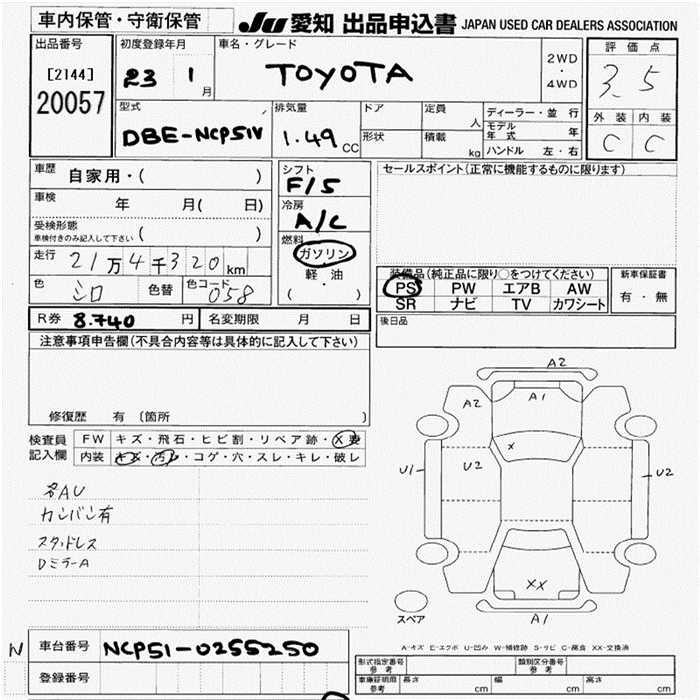 車内保管・守衛保管
JU 愛知 出品申込書 JAPAN USED CAR DEALERS ASSOCIATION
出品番号
[2144]
20057
初度登録年月
23 1 月
車名・グレード
TOYOTA
2WD
・
4WD
評価点
3.5
外装 内装
C C
型式
DBE-NCP51V
排気量
1.49 CC
ドア
形状
定員 人
積載 kg
ディーラー・並行
モデル年式 年
ハンドル 左・右
車歴 自家用・( )
車検 年 月( 日)
受検形態
車検付きのみ記入して下さい ( )
走行 21万4千320km
色 シロ 色替 色コード 058
シフト
F/5
冷房
A/C
燃料
ガソリン
軽油
( )
セールスポイント(正常に機能するものに限ります)
装備品(純正品に限り○をつけてください)
PS PW エアB AW
SR ナビ TV カワシート
新車保証書
有・無
後日品
R券 8.740 円 名変期限 月 日
注意事項申告欄(不具合内容等は具体的に記入して下さい)
修復歴 有 〔箇所 〕
検査員記入欄
FW キズ・飛石・ヒビ割・リペア跡・X要
内装 キズ・汚レ・コゲ・穴・スレ・キレ・破レ
各AU
カンバン有
スタッドレス
DミラーA
A2
A1
A2
X
U1
U2
U2
XX
A1
スペア
A-キズ E-エクボ U-凹み W-補修跡 S-サビ C-腐食 XX-交換済
N
車台番号 NCP51-0255250
登録番号
型式指定番号 参考
類別区分番号 参考
車庫証明用 参考
長さ cm
幅 cm
高さ cm